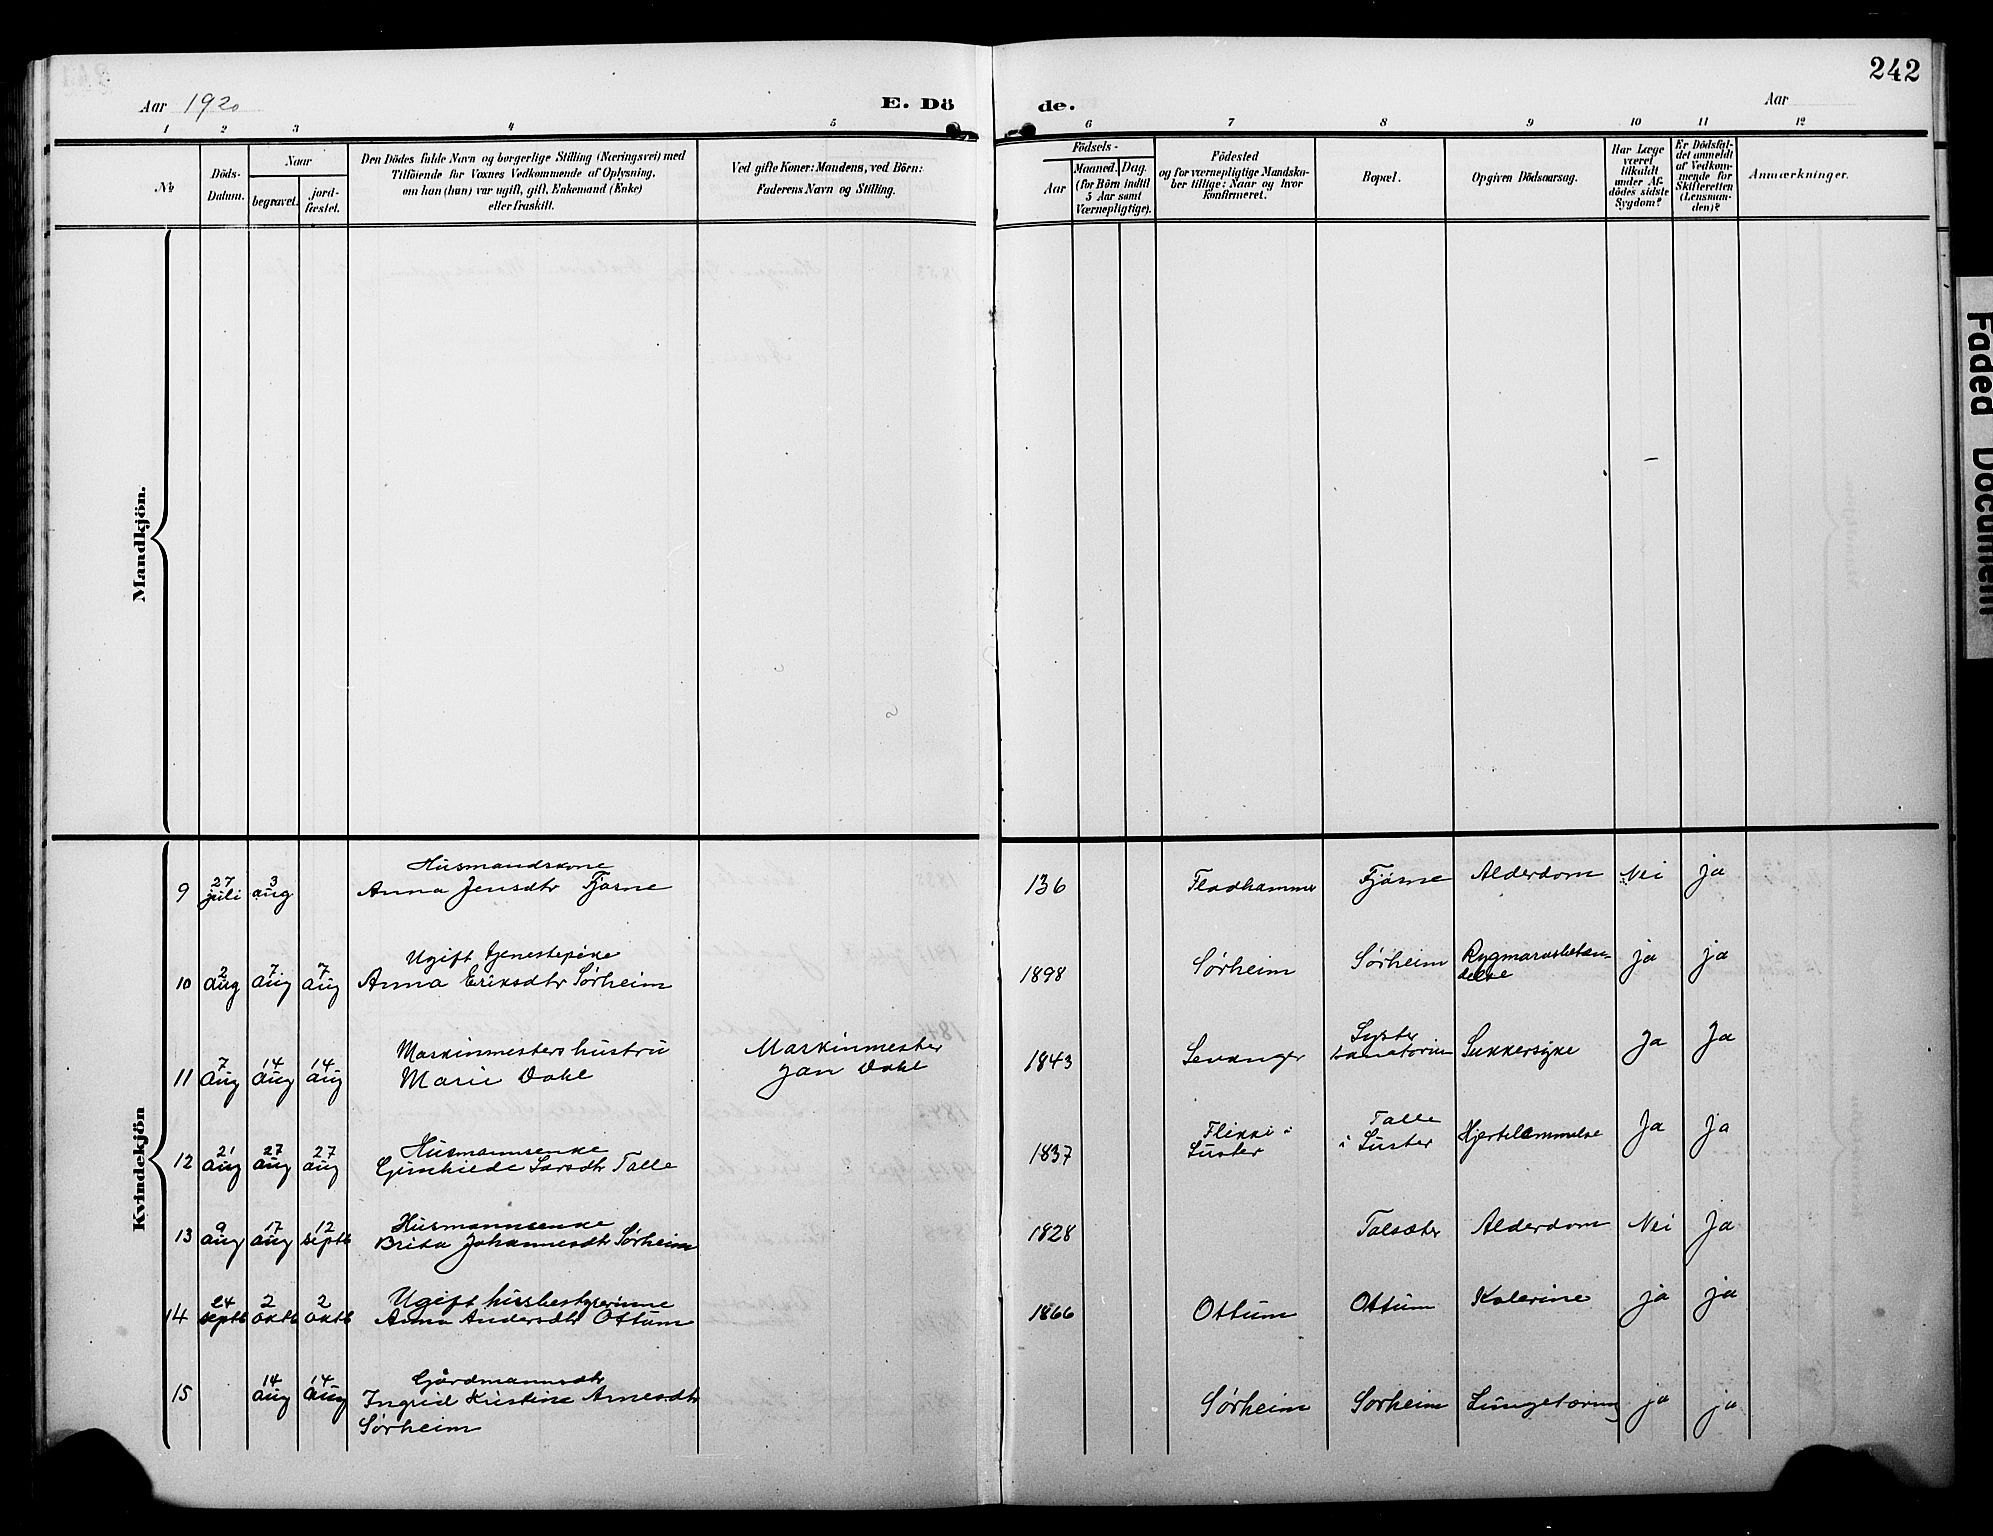 242
Aar 1920
E. Döde.
Aar
1 2 3 4 5 6 7 8 9 10 11 12
No
Döds-
Datum.
Naar
begravet.
jord-
fæstet.
Den Dödes fulde Navn og borgerlige Stilling (Næringsvei) med
Tilföiende for Voxnes Vedkommende af Oplysning,
om han (hun) var ugift, gift, Enkemand (Enke)
eller fraskilt.
Ved gifte Koner: Mandens, ved Börn:
Faderens Navn og Stilling.
Födsels-
Aar
Maaned. Dag.
(for Börn indtil
5 Aar samt
Værnepligtige).
Födested
og for værnepligtige Mandska-
ber tillige: Naar og hvor
konfirmeret.
Bopæl.
Opgiven Dödsaarsag.
Har Læge
været
tilkaldt
under Af-
dödes sidste
Sygdom?
Er Dödsfal-
det anmeldt
af Vedkom-
mende for
Skifteretten
(Lensman-
den)?
Anmærkninger.
Mandkjön.
Kvindekjön
9 27 juli 3 aug
Husmandskone
Anna Jensdtr Fjøsne
136 Flodhammer Fjøsne Alderdom Nei ja
10 2 aug 7 aug 7 aug
Ugift tjenestepike
Anna Eriksdtr Sørheim
1898 Sørheim Sørheim Rygmarvsbetæn-
delse ja ja
11 7 aug 14 aug 14 aug
Maskinmesters hustru
Marie Dahl
Maskinmester
Jan Dahl
1843 Levanger Lyster
sanatorium Sukkersyke Ja Ja
12 21 aug 27 aug 27 aug
Husmannsenke
Gunhilde Larsdtr Talle
1837 Flikki i
Luster
Talle
i Luster Hjertelammelse Ja Ja
13 9 aug 17 aug 12 septb
Husmannsenke
Brita Johannesdtr Sørheim
1828 Talsæter Alderdom Nei Ja
14 24 septb 2 oktb 2 oktb
Ugift husbestyrerinne
Anna Andersdtr Ottum
1866 Ottum Ottum Kolerine ja ja
15 14 aug 14 aug
Gårdmannsdtr
Ingrid Kristine Arnesdtr
Sørheim
Sørheim Sørheim Lungetæring ja ja
Faded Document